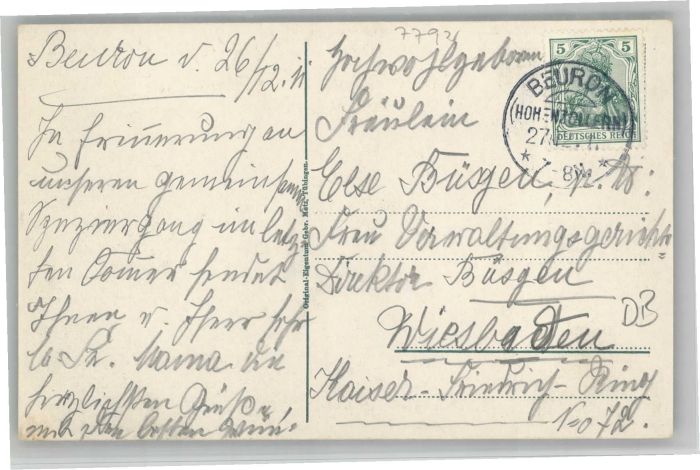 Beuron d. 26/12. 11
In Erinnerung an
unseren gemeinsamen
Spaziergang im letz-
ten Sommer sendet
Ihnen u. Ihrer sehr
l. Fr. Mama die
herzlichsten Grüße
mit den besten
7792
Hochwohlgeboren
Fräulein
Else Büsgen,
Frau Verwaltungsgerichts
Direktor Büsgen
Wiesbaden
Kaiser-Friedrich-Ring
No 72.
DB
5 5
DEUTSCHES REICH
BEURON
(HOHENZOLLERN)
27
8
Original-Eigentum Gebr. Metz, Tübingen.